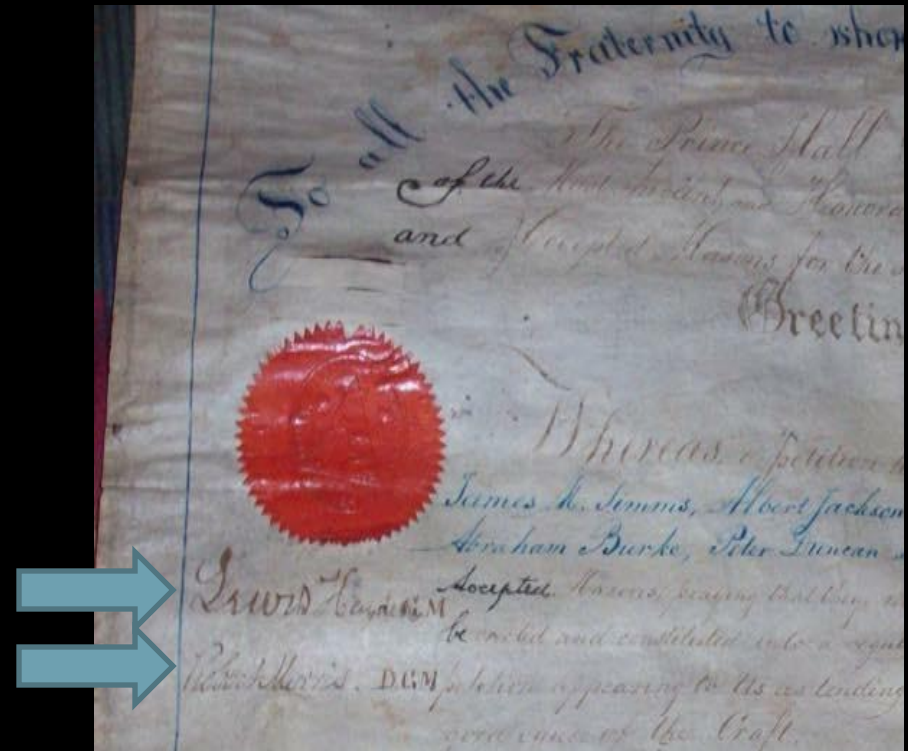 To all the Fraternity to whom
The Prince Hall
of the Most Ancient and Honora
and Accepted Masons for the
Greetin
Whereas, a petition
James M. Simms, Albert Jackson
Abraham Burke, Peter Duncan
Lewis Hayden GM
Accepted Masons, praying that they
be and constituted into a regu
Robert Morris. DGM petition appearing to Us as tending
good cause of the Craft.